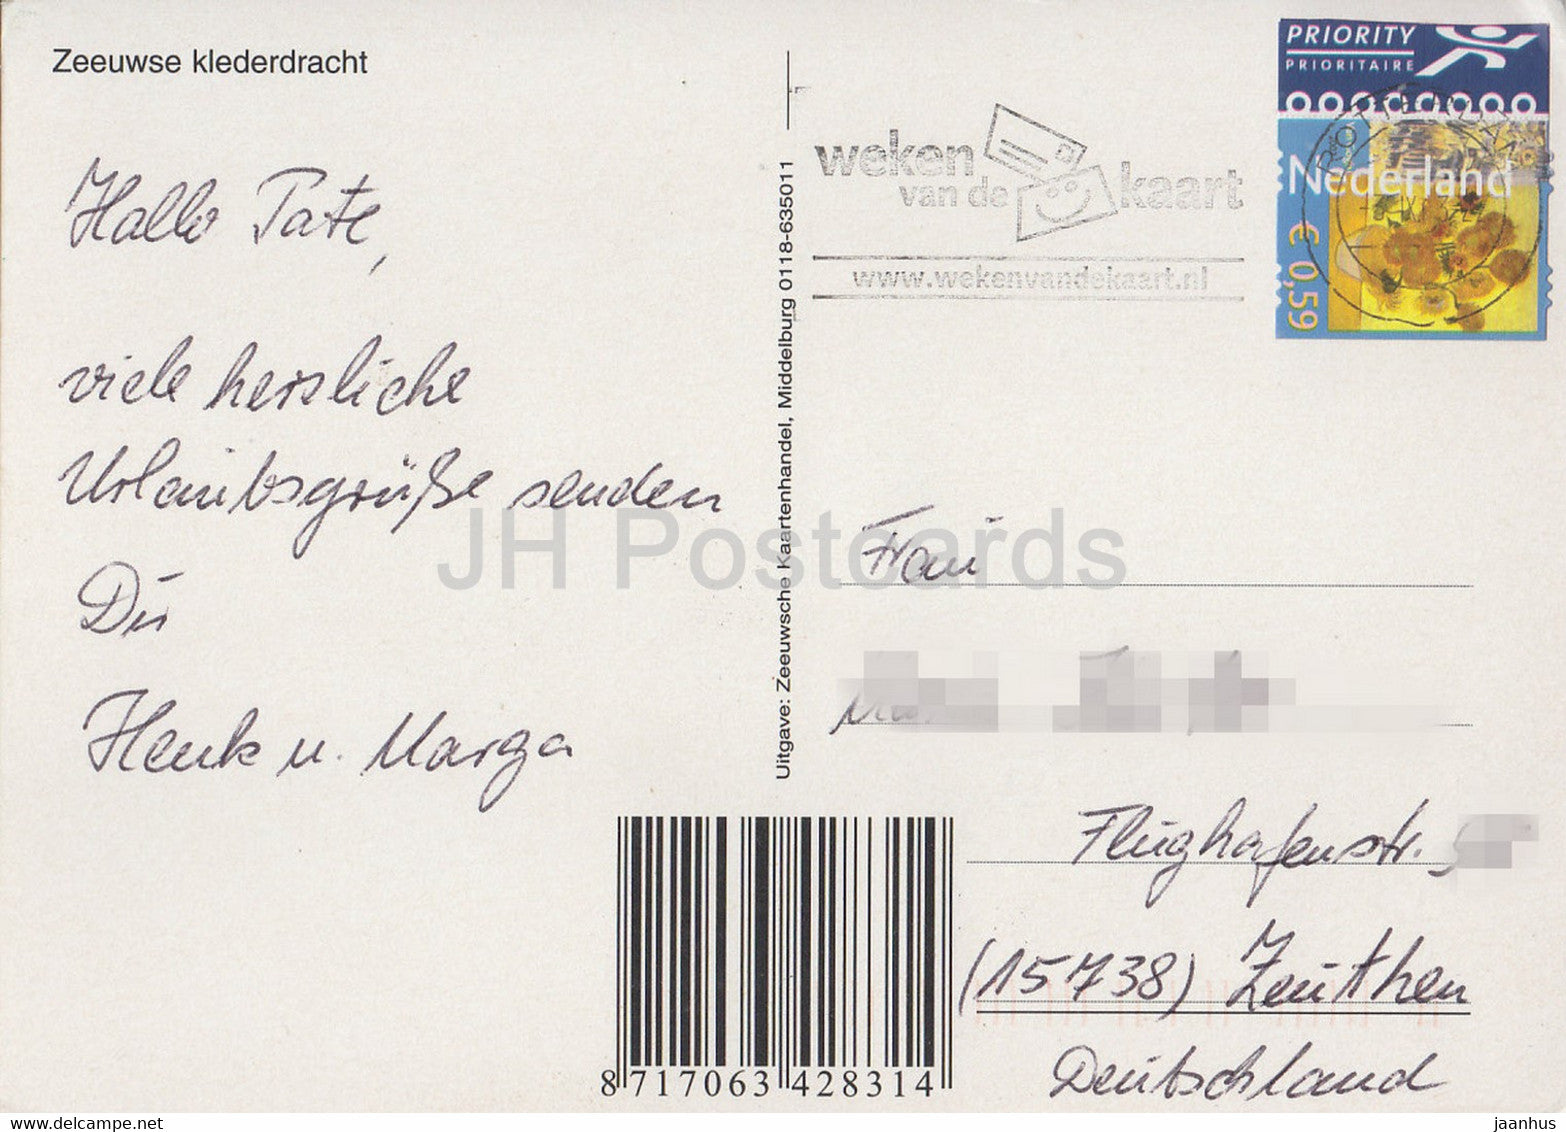 Zeeuwse klederdracht
Hallo Tate,
viele herzliche
Urlaubsgrüße senden
Dir
Henk u. Marga
Uitgave: Zeeuwsche Kaartenhandel, Middelburg 0118-635011
weken
van de kaart
www.wekenvandekaart.nl
PRIORITY
PRIORITAIRE
Nederland
€ 0,59
JH Postcards
Frau
Flughafenstr.
(15738) Zeuthen
Deutschland
8 717063 428314
www.delcampe.net
jaanhus